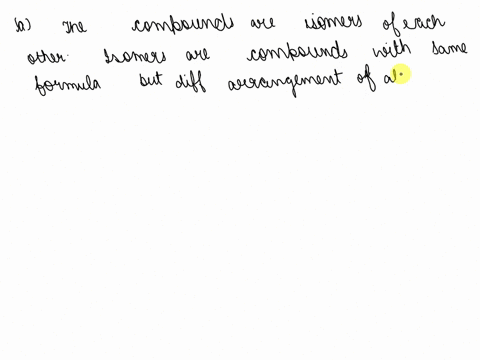 (a) The compounds are isomers of each
other. Isomers are compounds with same
formula but diff arrangement of